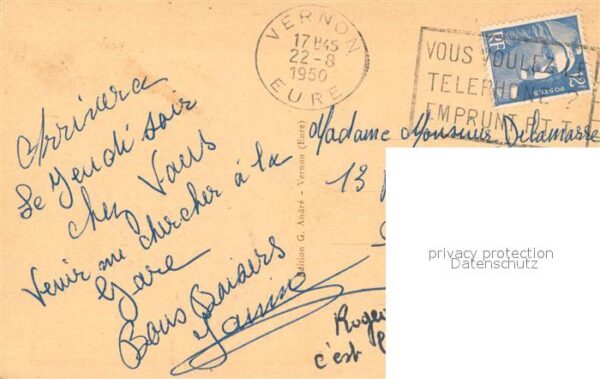 VERNON
17H45
22-8
1950
EURE
VOUS VOULEZ LE
TELEPHONE ?
EMPRUNT P.T.T.
RF
12F
POSTES
Arrivera
le Jeudi soir
chez Vous
Venir me chercher à la
Gare
Bons Baisers
Edition G. André - Vernon (Eure)
Madame Monsieur Delamarre
13
Roger
c'est
privacy protection
Datenschutz